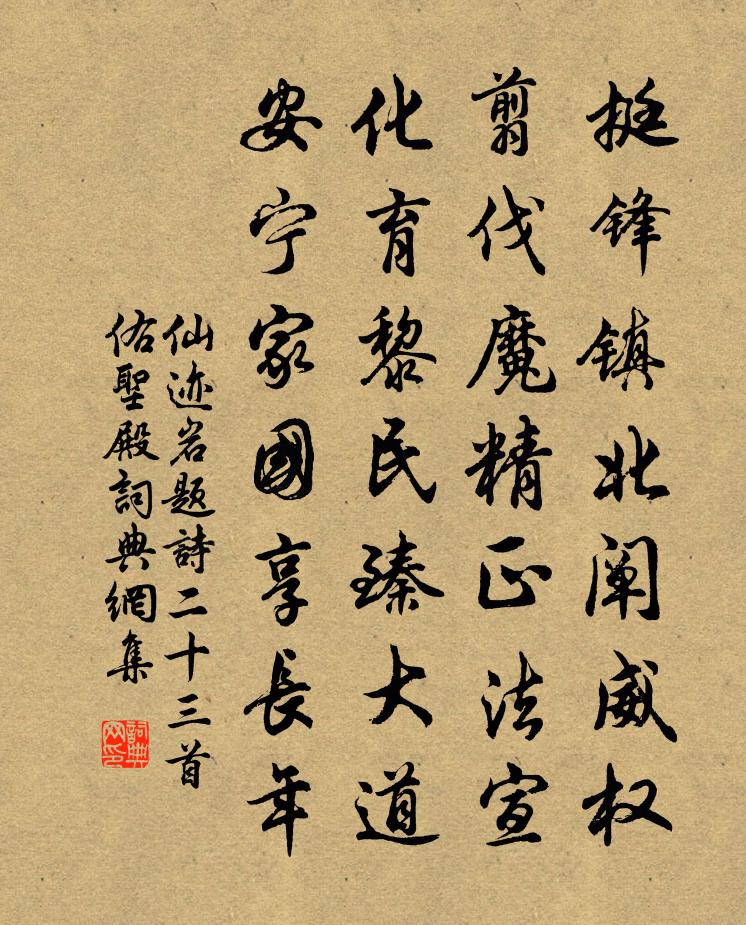 挺锋镇北阐威权
翦伐魔精正法宣
化育黎民臻大道
安宁家國享長年
仙迹岩题詩二十三首
佑聖殿詞典網集
詞典
网印